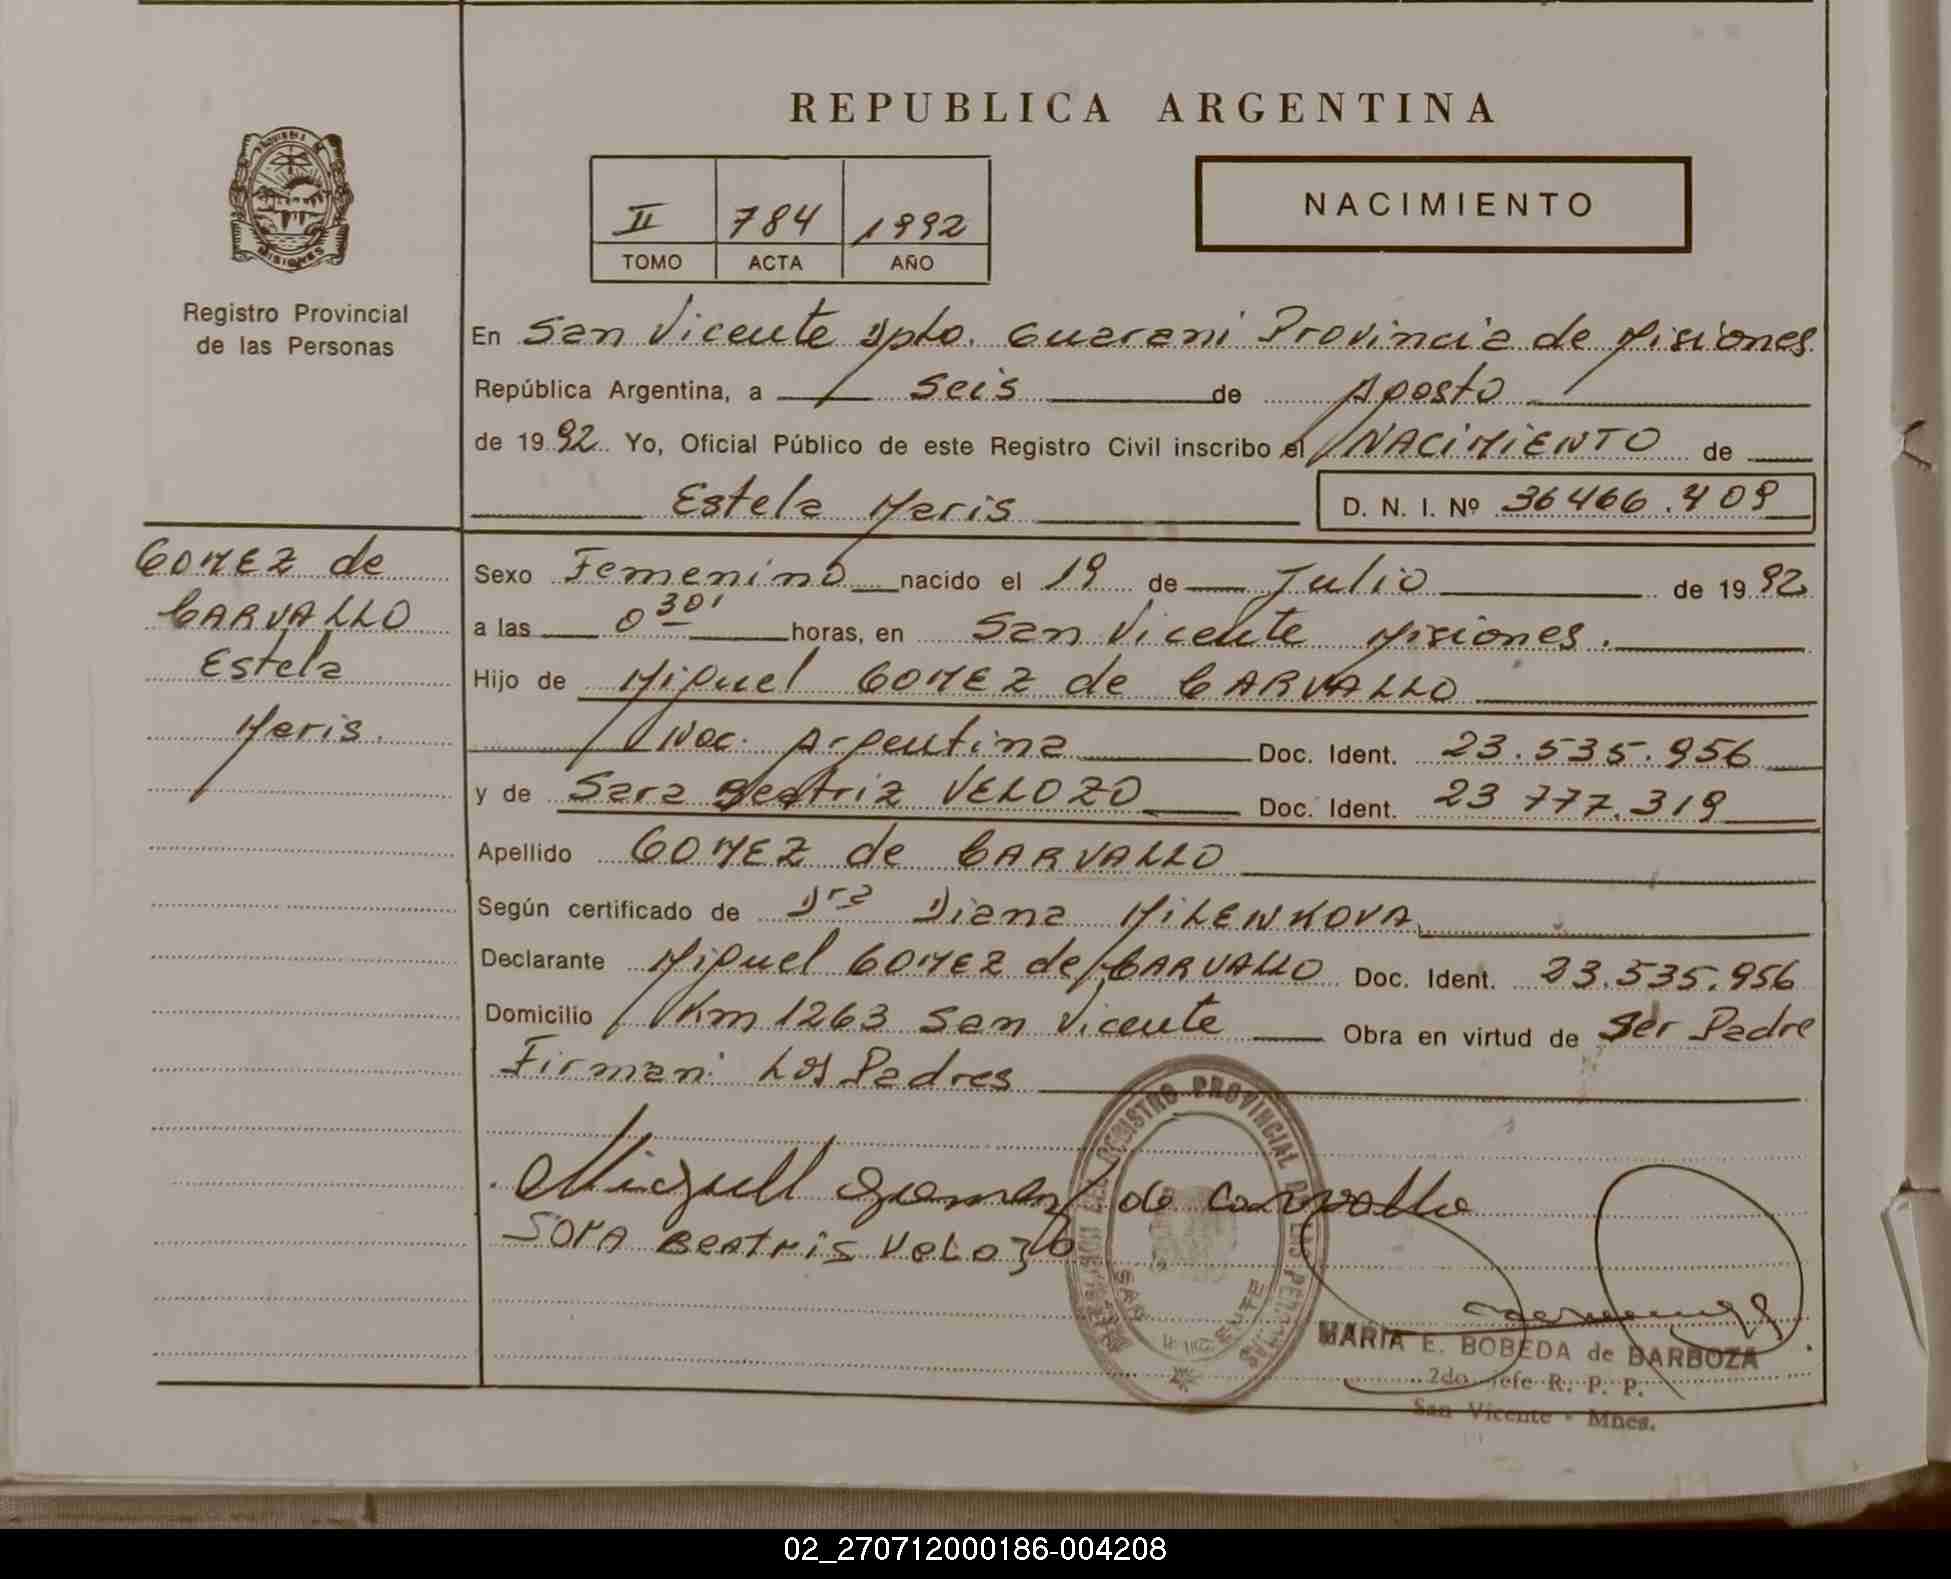 REPUBLICA ARGENTINA
II 784 1992
TOMO ACTA AÑO
NACIMIENTO
MISIONES
Registro Provincial
de las Personas
En San Vicente Dpto. Guarani Provincia de Misiones
República Argentina, a seis de Agosto
de 1992 Yo, Oficial Público de este Registro Civil inscribo el NACIMIENTO de
Estela Maris
D. N. I. Nº 36466.409
GOMEZ de
CARVALLO
Estela
Maris.
Sexo Femenino nacido el 19 de Julio de 1992
a las 0 30' horas, en San Vicente Misiones.
Hijo de Miguel GOMEZ de CARVALLO
Nac. Argentina Doc. Ident. 23.535.956
y de Sara Beatriz VELOZO Doc. Ident. 23 777.319
Apellido GOMEZ de CARVALLO
Según certificado de Dra Diana MILENKOVA
Declarante Miguel GOMEZ de CARVALLO Doc. Ident. 23.535.956
Domicilio Km 1263 San Vicente Obra en virtud de Ser Padre
Firman: Los Padres
Miguell gomez de Carvallo
SORA BEATRIS VELOZO
REGISTRO PROVINCIAL DE LAS PERSONAS
SAN VICENTE
MARIA E. BOBEDA de BARBOZA
2do. Jefe R. P. P.
San Vicente - Mnes.
02_270712000186-004208